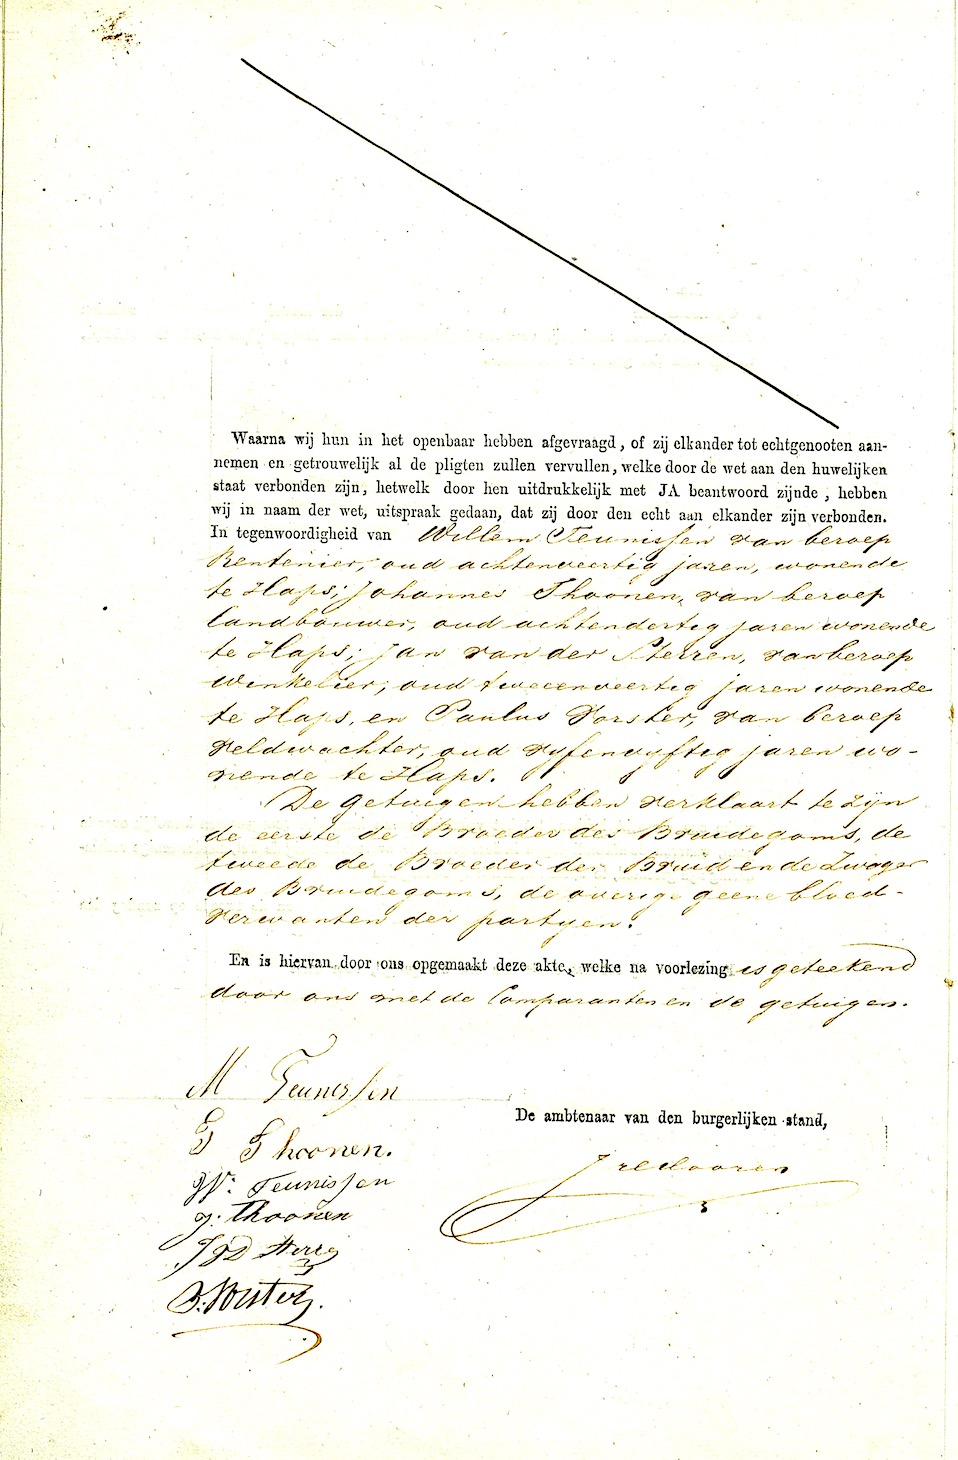 Waarna wij hun in het openbaar hebben afgevraagd, of zij elkander tot echtgenooten aan-
nemen en getrouwelijk al de pligten zullen vervullen, welke door de wet aan den huwelijken
staat verbonden zijn, hetwelk door hen uitdrukkelijk met JA beantwoord zijnde, hebben
wij in naam der wet, uitspraak gedaan, dat zij door den echt aan elkander zijn verbonden.
In tegenwoordigheid van Willem Teunissen van beroep
Rentenier, oud achtenveertig jaren, wonende
te Haps; Johannes Thoonen, van beroep
landbouwer, oud achtendertig jaren wonende
te Haps; Jan van der Sterren, van beroep
Winkelier, oud tweeenveertig jaren wonende
te Haps, en Paulus Vorster, van beroep
veldwachter, oud vyfenvyftig jaren wo-
nende te Haps.
De getuigen hebben verklaart te zyn
de eerste de Broeder des Bruidegoms, de
tweede de Broeder der Bruid en de Zwager
des Bruidegoms, de overige geene bloed-
verwanten der partyen.
En is hiervan door ons opgemaakt deze akte, welke na voorlezing is geteekend
door ons met de Comparanten en de getuigen.
M Teunissen
De ambtenaar van den burgerlijken stand,
G Thoonen.
W. Teunissen
J. Thoonen